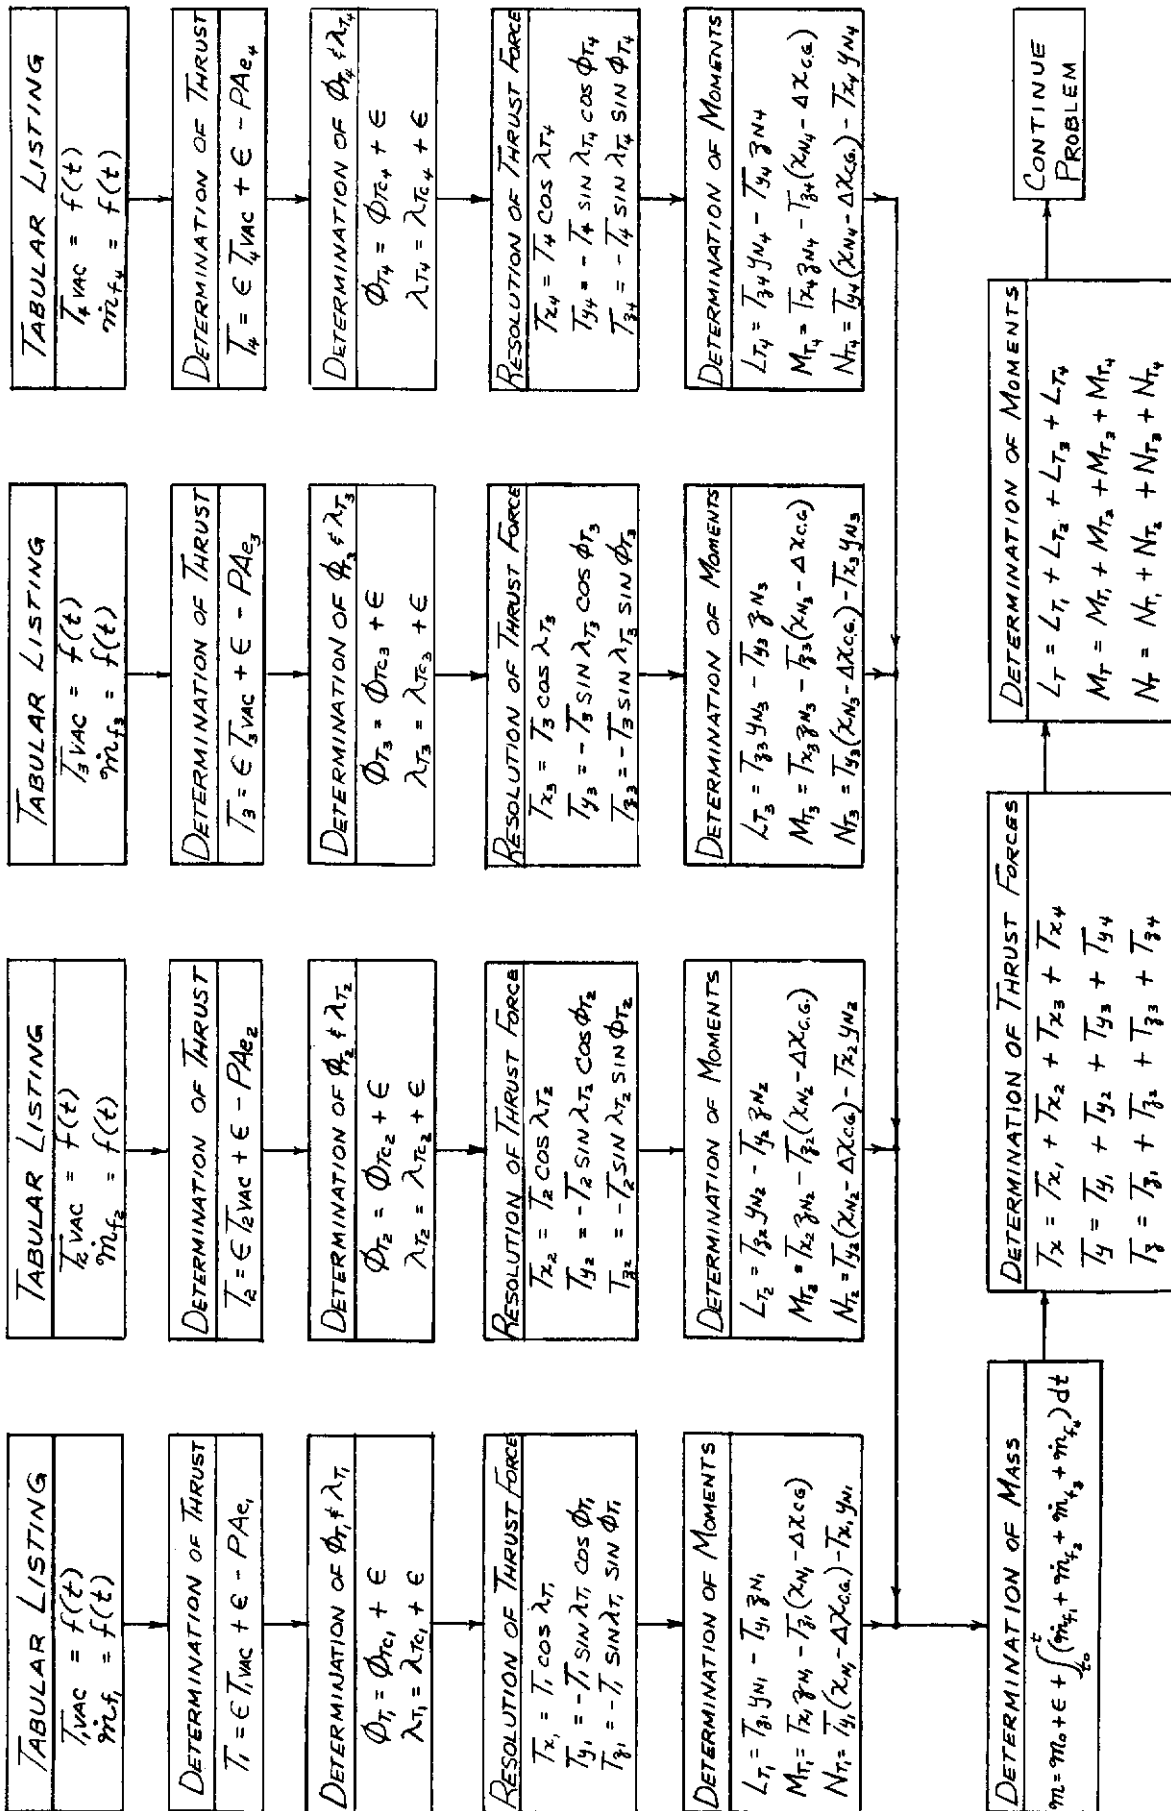 TABULAR LISTING
T₁VAC = f(t)
ṁf₁ = f(t)
DETERMINATION OF THRUST
T₁ = ϵ T₁VAC + ϵ - PAe₁
DETERMINATION OF ΦT₁ & λT₁
ΦT₁ = ΦTC₁ + ϵ
λT₁ = λTC₁ + ϵ
RESOLUTION OF THRUST FORCE
Tx₁ = T₁ COS λT₁
Ty₁ = -T₁ SIN λT₁ COS ΦT₁
Tz₁ = -T₁ SIN λT₁ SIN ΦT₁
DETERMINATION OF MOMENTS
LT₁ = Tz₁ yN₁ - Ty₁ zN₁
MT₁ = Tx₁ zN₁ - Tz₁(xN₁ - ΔXCG)
NT₁ = Ty₁(xN₁ - ΔXC.G.) - Tx₁ yN₁
TABULAR LISTING
T₂VAC = f(t)
ṁf₂ = f(t)
DETERMINATION OF THRUST
T₂ = ϵ T₂VAC + ϵ - PAe₂
DETERMINATION OF ΦT₂ & λT₂
ΦT₂ = ΦTC₂ + ϵ
λT₂ = λTC₂ + ϵ
RESOLUTION OF THRUST FORCE
Tx₂ = T₂ COS λT₂
Ty₂ = -T₂ SIN λT₂ COS ΦT₂
Tz₂ = -T₂ SIN λT₂ SIN ΦT₂
DETERMINATION OF MOMENTS
LT₂ = Tz₂ yN₂ - Ty₂ zN₂
MT₂ = Tx₂ zN₂ - Tz₂(xN₂ - ΔXC.G.)
NT₂ = Ty₂(xN₂ - ΔXC.G.) - Tx₂ yN₂
TABULAR LISTING
T₃VAC = f(t)
ṁf₃ = f(t)
DETERMINATION OF THRUST
T₃ = ϵ T₃VAC + ϵ - PAe₃
DETERMINATION OF ΦT₃ & λT₃
ΦT₃ = ΦTC₃ + ϵ
λT₃ = λTC₃ + ϵ
RESOLUTION OF THRUST FORCE
Tx₃ = T₃ COS λT₃
Ty₃ = -T₃ SIN λT₃ COS ΦT₃
Tz₃ = -T₃ SIN λT₃ SIN ΦT₃
DETERMINATION OF MOMENTS
LT₃ = Tz₃ yN₃ - Ty₃ zN₃
MT₃ = Tx₃ zN₃ - Tz₃(xN₃ - ΔXC.G)
NT₃ = Ty₃(xN₃ - ΔXC.G.) - Tx₃ yN₃
TABULAR LISTING
T₄VAC = f(t)
ṁf₄ = f(t)
DETERMINATION OF THRUST
T₄ = ϵ T₄VAC + ϵ - PAe₄
DETERMINATION OF ΦT₄ & λT₄
ΦT₄ = ΦTC₄ + ϵ
λT₄ = λTC₄ + ϵ
RESOLUTION OF THRUST FORCE
Tx₄ = T₄ COS λT₄
Ty₄ = -T₄ SIN λT₄ COS ΦT₄
Tz₄ = -T₄ SIN λT₄ SIN ΦT₄
DETERMINATION OF MOMENTS
LT₄ = Tz₄ yN₄ - Ty₄ zN₄
MT₄ = Tx₄ zN₄ - Tz₄(xN₄ - ΔXC.G.)
NT₄ = Ty₄(xN₄ - ΔXC.G.) - Tx₄ yN₄
DETERMINATION OF MASS
m = m₀ + ϵ + ∫t₀ᵗ(ṁf₁ + ṁf₂ + ṁf₃ + ṁf₄)dt
DETERMINATION OF THRUST FORCES
Tx = Tx₁ + Tx₂ + Tx₃ + Tx₄
Ty = Ty₁ + Ty₂ + Ty₃ + Ty₄
Tz = Tz₁ + Tz₂ + Tz₃ + Tz₄
DETERMINATION OF MOMENTS
LT = LT₁ + LT₂ + LT₃ + LT₄
MT = MT₁ + MT₂ + MT₃ + MT₄
NT = NT₁ + NT₂ + NT₃ + NT₄
CONTINUE
PROBLEM